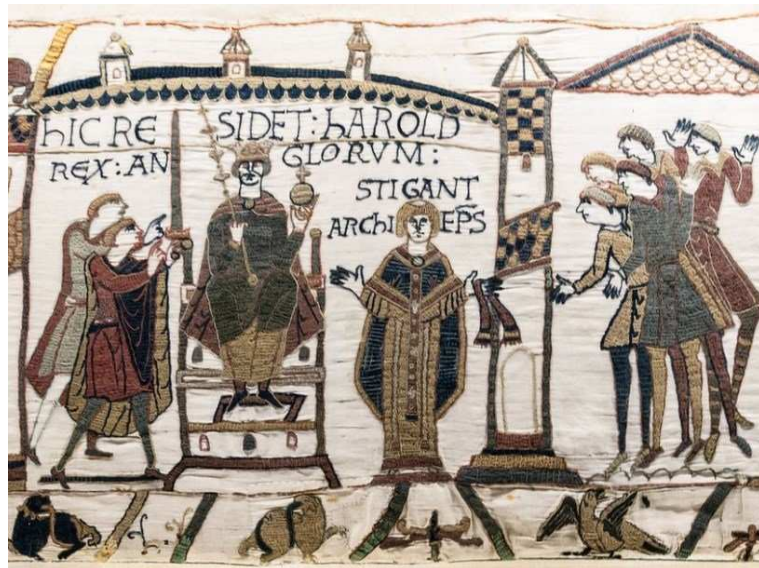 hIC RE SIDET : hAROLD
REX : AN GLORVM :
STIGANT
ARChI EP̄S